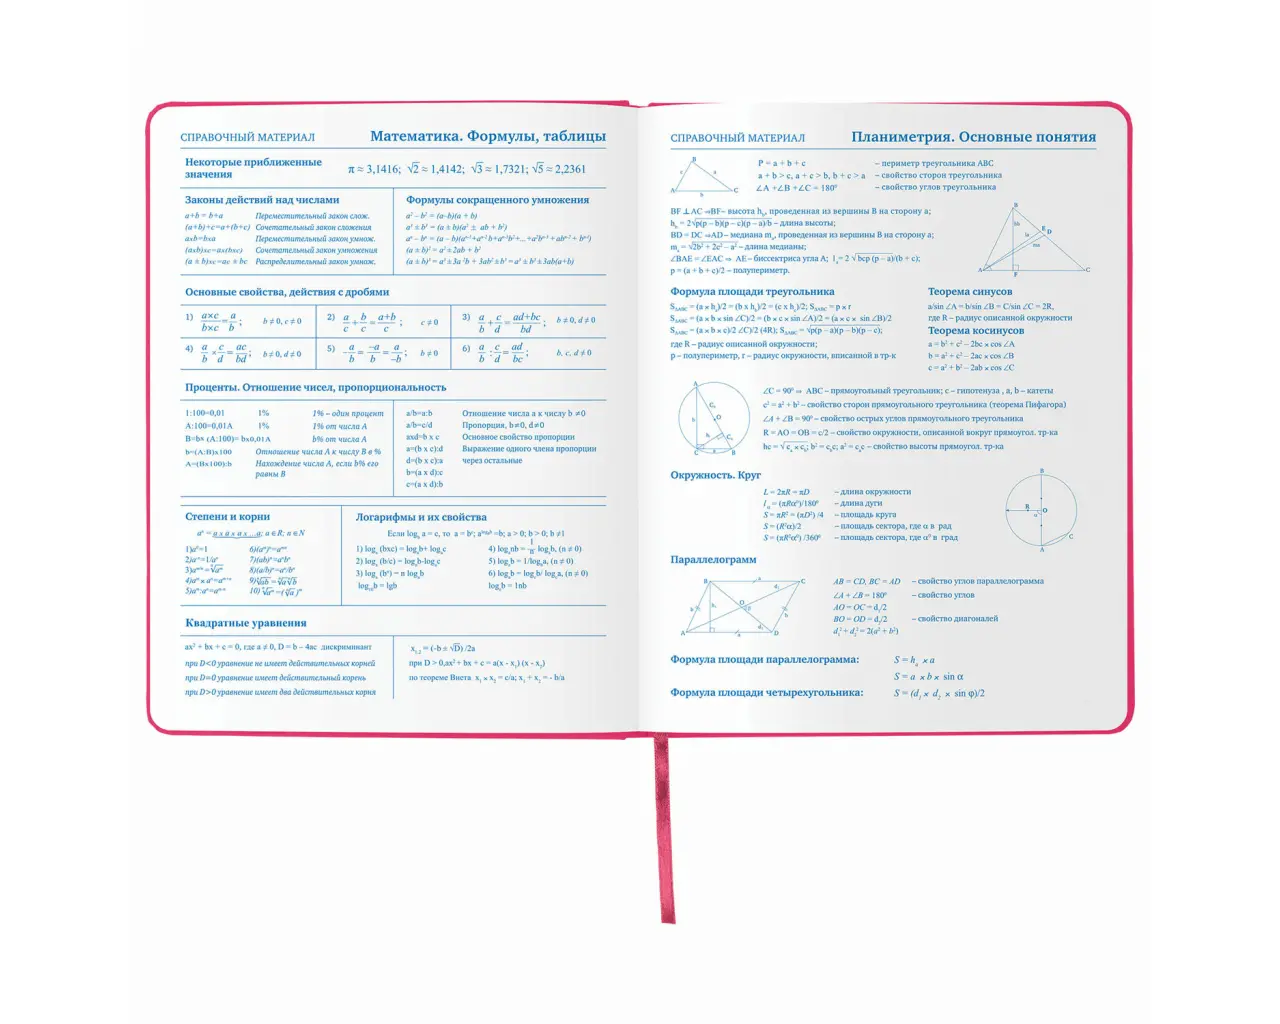 СПРАВОЧНЫЙ МАТЕРИАЛ Математика. Формулы, таблицы
Некоторые приближенные
значения
π ≈ 3,1416; √2 ≈ 1,4142; √3 ≈ 1,7321; √5 ≈ 2,2361
Законы действий над числами
a+b = b+a Переместительный закон слож.
(a+b)+c=a+(b+c) Сочетательный закон сложения
axb=bxa Переместительный закон умнож.
(axb)xc=ax(bxc) Сочетательный закон умножения
(a ± b)xc=ac ± bc Распределительный закон умнож.
Формулы сокращенного умножения
a² – b² = (a–b)(a + b)
a³ ± b³ = (a ± b)(a² ± ab + b²)
aⁿ – bⁿ = (a – b)(aⁿ⁻¹+aⁿ⁻²b+aⁿ⁻³b²+...+a²bⁿ⁻³ + abⁿ⁻² + bⁿ⁻¹)
(a ± b)² = a² ± 2ab + b²
(a ± b)³ = a³ ± 3a²b + 3ab² ± b³ = a³ ± b³ ± 3ab(a+b)
Основные свойства, действия с дробями
1) a×c/b×c = a/b ; b ≠ 0, c ≠ 0
2) a/c + b/c = a+b/c ; c ≠ 0
3) a/b + c/d = ad+bc/bd ; b ≠ 0, d ≠ 0
4) a/b × c/d = ac/bd ; b ≠ 0, d ≠ 0
5) –a/b = –a/b = a/–b ; b ≠ 0
6) a/b : c/d = ad/bc ; b. c, d ≠ 0
Проценты. Отношение чисел, пропорциональность
1:100=0,01 1% 1% – один процент
A:100=0,01A 1% 1% от числа A
B=b× (A:100)= bx0,01A b% от числа A
b=(A:B)x100 Отношение числа A к числу B в %
A=(Bx100):b Нахождение числа A, если b% его
равны B
a/b=a:b Отношение числа a к числу b ≠0
a/b=c/d Пропорция, b≠0, d≠0
axd=b x c Основное свойство пропорции
a=(b x c):d Выражение одного члена пропорции
d=(b x c):a через остальные
b=(a x d):c
c=(a x d):b
Степени и корни
aⁿ = a x a x a x ...a; a∈R; n∈N
1)a⁰=1 6)(aᵐ)ⁿ=aᵐⁿ
2)a⁻ⁿ=1/aⁿ 7)(ab)ⁿ=aⁿbⁿ
3)aᵐ/ⁿ=ⁿ√aᵐ 8)(a/b)ⁿ=aⁿ/bⁿ
4)aᵐ x aⁿ=aᵐ⁺ⁿ 9)ⁿ√ab =ⁿ√aⁿ√b
5)aᵐ:aⁿ=aᵐ⁻ⁿ 10)ⁿ√aᵐ =(ⁿ√a)ᵐ
Логарифмы и их свойства
Если log_b a = c, то a = bᶜ; a^(log_a b) =b; a > 0; b > 0; b ≠1
1) logₐ (bxc) = logₐb+ logₐc 4) log_aⁿb = 1/n logₐb, (n ≠ 0)
2) logₐ (b/c) = logₐb-logₐc 5) logₐb = 1/log_b a, (n ≠ 0)
3) logₐ (bⁿ) = n logₐb 6) logₐb = log_c b/ log_c a, (n ≠ 0)
log₁₀b = lgb logₑb = 1nb
Квадратные уравнения
ax² + bx + c = 0, где a ≠ 0, D = b – 4ac дискриминант
при D<0 уравнение не имеет действительных корней
при D=0 уравнение имеет действительный корень
при D>0 уравнение имеет два действительных корня
x₁,₂ = (-b ± √D) /2a
при D > 0,ax² + bx + c = a(x - x₁) (x - x₂)
по теореме Виета x₁ × x₂ = c/a; x₁ + x₂ = - b/a
СПРАВОЧНЫЙ МАТЕРИАЛ Планиметрия. Основные понятия
B
c a
A C
b
P = a + b + c – периметр треугольника ABC
a + b > c, a + c > b, b + c > a – свойство сторон треугольника
∠A +∠B +∠C = 180⁰ – свойство углов треугольника
BF ⊥ AC ⇒BF– высота h_b, проведенная из вершины B на сторону a;
h_b = 2√p(p – b)(p – c)(p – a)/b – длина высоты;
BD = DC ⇒AD – медиана mₐ, проведенная из вершины B на сторону a;
mₐ = √2b² + 2c² – a² – длина медианы;
∠BAE = ∠EAC ⇒ AE – биссектриса угла A; lₐ = 2 √ bcp (p – a)/(b + c);
p = (a + b + c)/2 – полупериметр.
B
hb E D
la
ma
A F C
Формула площади треугольника
S_ΔABC = (a × hₐ)/2 = (b x h_b)/2 = (c x h_c)/2; S_ΔABC = p × r
S_ΔABC = (a × b × sin ∠C)/2 = (b × c × sin ∠A)/2 = (a × c × sin ∠B)/2
S_ΔABC = (a × b × c)/2 ∠C)/2 (4R); S_ΔABC = √p(p – a)(p – b)(p – c),
где R – радиус описанной окружности;
p – полупериметр, r – радиус окружности, вписанной в тр-к
Теорема синусов
a/sin ∠A = b/sin ∠B = C/sin ∠C = 2R,
где R – радиус описанной окружности
Теорема косинусов
a² = b² + c² – 2bc × cos ∠A
b = a² + c² – 2ac × cos ∠B
c = a² + b² – 2ab × cos ∠C
A
C_b
O
b
h C_a
C a B
∠C = 90⁰ ⇒ ABC – прямоугольный треугольник; c – гипотенуза , a, b – катеты
c² = a² + b² – свойство сторон прямоугольного треугольника (теорема Пифагора)
∠A + ∠B = 90⁰ – свойство острых углов прямоугольного треугольника
R = AO = OB = c/2 – свойство окружности, описанной вокруг прямоугол. тр-ка
hc = √cₐ × c_b; b² = c_b c; a² = cₐc – свойство высоты прямоугол. тр-ка
Окружность. Круг
L = 2πR = πD – длина окружности
l_α = (πRα⁰)/180⁰ – длина дуги
S = πR² = (πD²) /4 – площадь круга
S = (R²α)/2 – площадь сектора, где α в рад
S = (πR²α⁰) /360⁰ – площадь сектора, где α⁰ в град
B
R O
α
A C
Параллелограмм
B a C
d₁
b hₐ O φ b
d₂
A a D
AB = CD, BC = AD – свойство углов параллелограмма
∠A + ∠B = 180⁰ – свойство углов
AO = OC = d₁/2
BO = OD = d₂/2 – свойство диагоналей
d₁² + d₂² = 2(a² + b²)
Формула площади параллелограмма: S = hₐ × a
S = a × b × sin α
Формула площади четырехугольника: S = (d₁ × d₂ × sin φ)/2